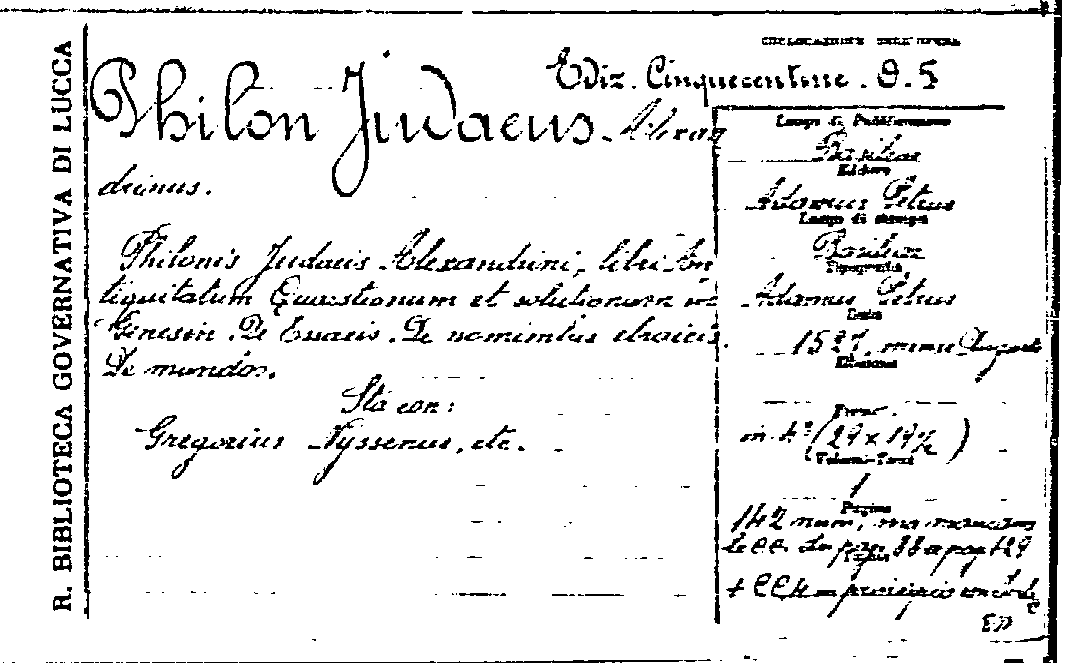 R. BIBLIOTECA GOVERNATIVA DI LUCCA
COLLOCAZIONE DELL'OPERA
Ediz. Cinquecentine. O. 5
Philon Judaeus. Alexan
drinus.
Philonis Judaeis Alexandrini, libri An
tiquitatum Quaestionum et solutionum in
Genesin. De Essaeis. De nominibus ebraicis.
De mundo.
Sta con:
Gregorius Nyssenus, etc.
Luogo di Pubblicazione
Basileae
Editore
Adamus Petrus
Luogo di stampa
Basileae
Tipografia
Adamus Petrus
Data
1527, mense Augusto
Edizione
Form.
in 4° (29 x 19½)
Volumi-Tomi
1
Pagine
142 num, ma mancano
le cc. da pag. 88 a pag 129
+ CC4 principio con tav.